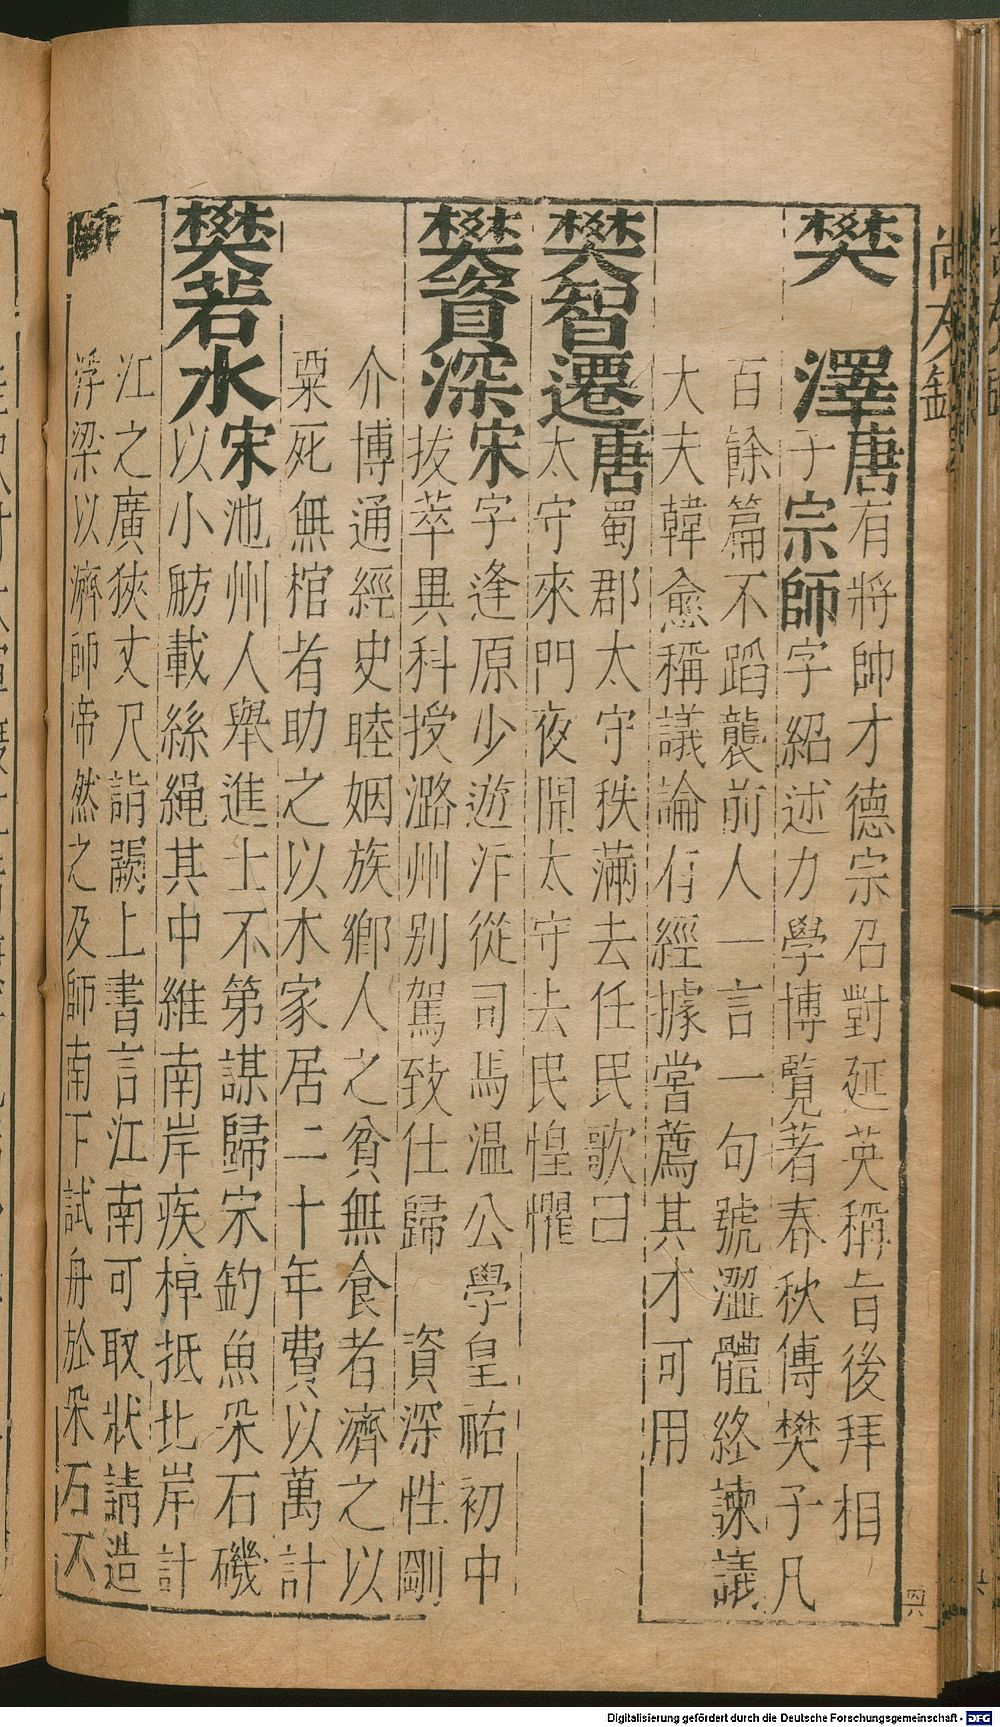 樊　澤唐有將帥才德宗召對延英稱旨後拜相
子宗師字紹述力學博覽著春秋傳樊子凡
百餘篇不蹈襲前人一言一句號澀體終諫議
大夫韓愈稱議論有經據嘗薦其才可用
樊智遷唐蜀郡太守秩滿去任民歌曰
太守來門夜開太守去民惶懼
樊資深宋字逢原少遊泎從司馬温公學皇祐初中
拔萃異科授潞州别駕致仕歸　資深性剛
介博通經史睦姻族鄉人之貧無食者濟之以
粟死無棺者助之以木家居二十年費以萬計
樊若水宋池州人舉進士不第謀歸宋釣魚采石磯
以小舫載絲繩其中維南岸疾棹抵北岸計
江之廣狹丈尺詣闕上書言江南可取狀請造
浮梁以濟師帝然之及師南下試舟於采石不
尚友録
四六
Digitalisierung gefördert durch die Deutsche Forschungsgemeinschaft - DFG